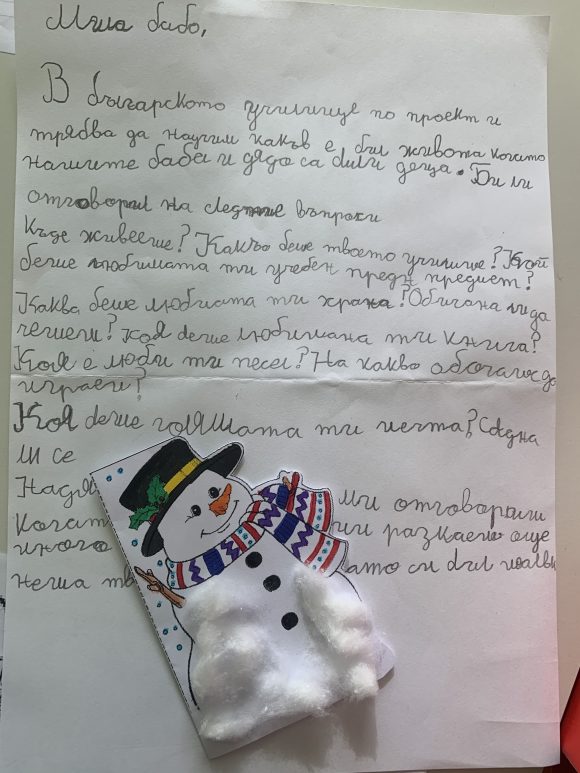 Мила бабо,
В българското училище по проект и
трябва да научим какъв е бил живота когато
нашите баби и дядо са били деца. Би ли
отговорил на следние въпроси
Къде живееше? Какъо беше твоето училище? Кой
беше любимата ти учебен предн предмет?
Каква беше любиата ти храна? Обичана ли да
четеш? Коя беше любимана ти книга?
Коя е люби ти песен? На какво обочаше да
играеш?
Коя беше голямата ти мечта? Сбдна
ли се
Надя ми отговориш
Когат ми разкаеш още
много
неща тв ато си бил малък